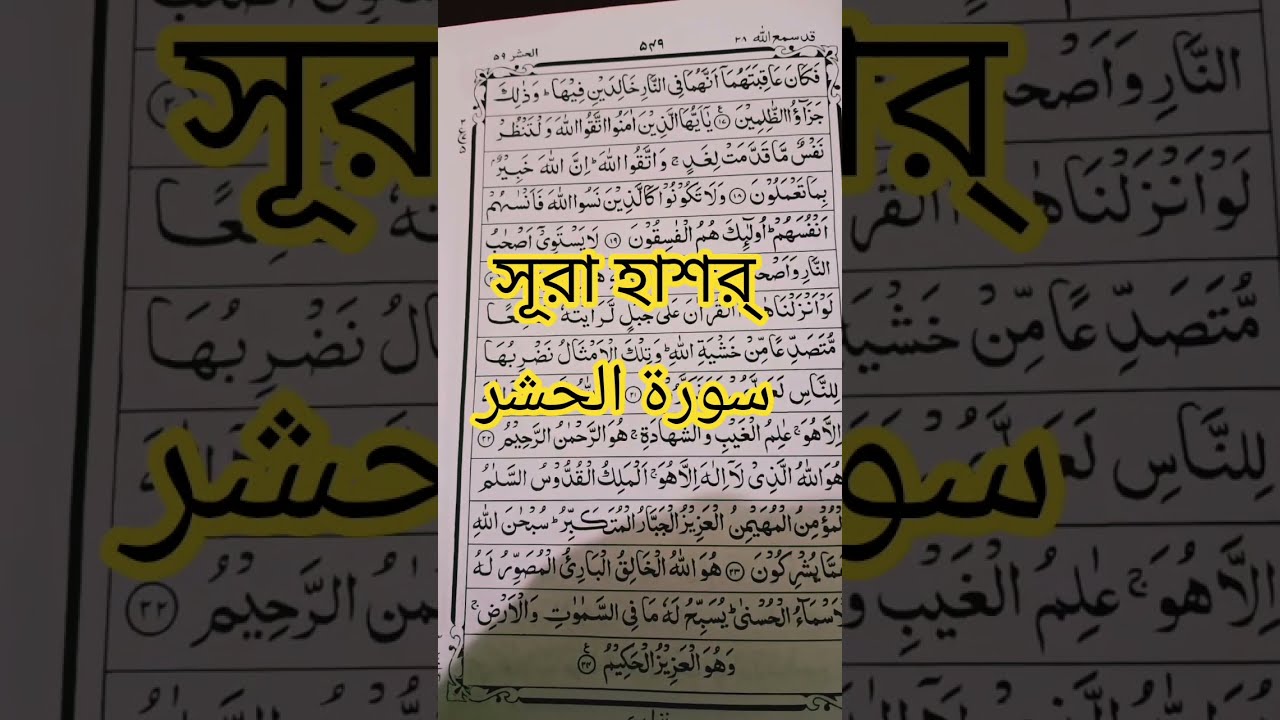 قد سمع الله ٢٨
۵۴۹
الحشر ۵۹
فَكَانَ عَاقِبَتَهُمَآ اَنَّهُمَا فِى النَّارِ خَالِدَيْنِ فِيْهَا ؕ وَذٰلِكَ
جَزٰٓؤُا الظّٰلِمِيْنَ ﴿۱۷﴾ يٰٓاَيُّهَا الَّذِيْنَ اٰمَنُوا اتَّقُوا اللّٰهَ وَلْتَنْظُرْ
نَفْسٌ مَّا قَدَّمَتْ لِغَدٍ ۚ وَاتَّقُوا اللّٰهَ ؕ اِنَّ اللّٰهَ خَبِيْرٌۢ
بِمَا تَعْمَلُوْنَ ﴿۱۸﴾ وَلَا تَكُوْنُوْا كَالَّذِيْنَ نَسُوا اللّٰهَ فَاَنْسٰىهُمْ
اَنْفُسَهُمْ ؕ اُولٰٓئِكَ هُمُ الْفٰسِقُوْنَ ﴿۱۹﴾ لَا يَسْتَوِىْٓ اَصْحٰبُ
النَّارِ وَاَصْحٰ
সূরা হাশর্
لَوْ اَنْزَلْنَا هٰ الْقُرْاٰنَ عَلٰى جَبَلٍ لَّرَاَيْتَهٗ
مُّتَصَدِّعًا مِّنْ خَشْيَةِ اللّٰهِ ؕ وَتِلْكَ الْاَمْثَالُ نَضْرِبُهَا
لِلنَّاسِ لَعَ ﴿۲۱﴾
سورة الحشر
اِلَّا هُوَ ۚ عٰلِمُ الْغَيْبِ وَالشَّهَادَةِ ۚ هُوَ الرَّحْمٰنُ الرَّحِيْمُ ﴿۲۲﴾
هُوَ اللّٰهُ الَّذِىْ لَآ اِلٰهَ اِلَّا هُوَ ۚ اَلْمَلِكُ الْقُدُّوْسُ السَّلٰمُ
الْمُؤْمِنُ الْمُهَيْمِنُ الْعَزِيْزُ الْجَبَّارُ الْمُتَكَبِّرُ ؕ سُبْحٰنَ اللّٰهِ
عَمَّا يُشْرِكُوْنَ ﴿۲۳﴾ هُوَ اللّٰهُ الْخَالِقُ الْبَارِئُ الْمُصَوِّرُ لَهُ
الْاَسْمَآءُ الْحُسْنٰى ؕ يُسَبِّحُ لَهٗ مَا فِى السَّمٰوٰتِ وَالْاَرْضِ ۚ
وَهُوَ الْعَزِيْزُ الْحَكِيْمُ ﴿۲۴﴾